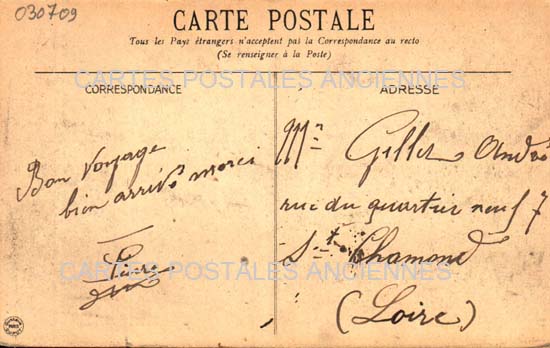 030709
CARTE POSTALE
Tous les Pays étrangers n'acceptent pas la Correspondance au recto
(Se renseigner à la Poste)
CARTES POSTALES ANCIENNES
CORRESPONDANCE
Bon Voyage
bien arrivé merci
ADRESSE
Mr Gillet André
rue du quartier neuf 7
St Chamond
(Loire)
CARTES POSTALES ANCIENNES
PARIS